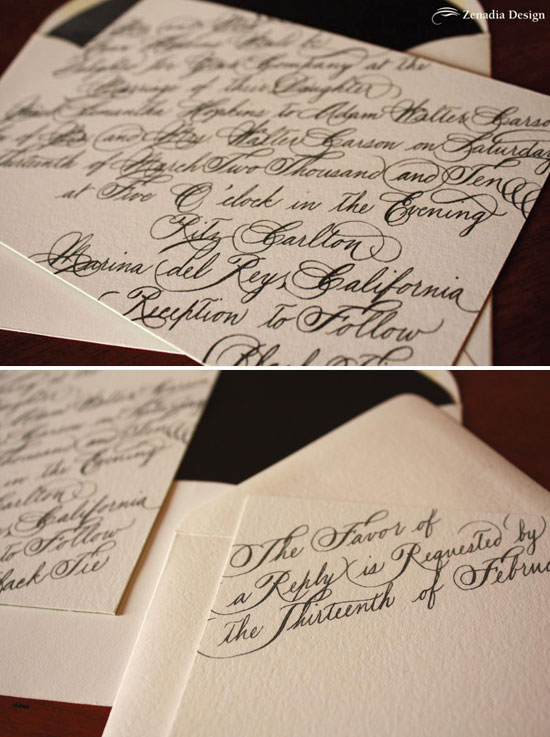 Zenadia Design
Company at the
Marriage of their Daughter
Samantha Hopkins to Adam Walter Carson
of Mr and Mrs Walter Carson on Saturday
Thirteenth of March Two Thousand and Ten
at Five O'clock in the Evening
Ritz Carlton
Marina del Rey, California
Reception to Follow
Black Tie
Walter Carson
and Ten
in the Evening
Carlton
, California
to Follow
Black Tie
The Favor of
a Reply is Requested by
the Thirteenth of Febru